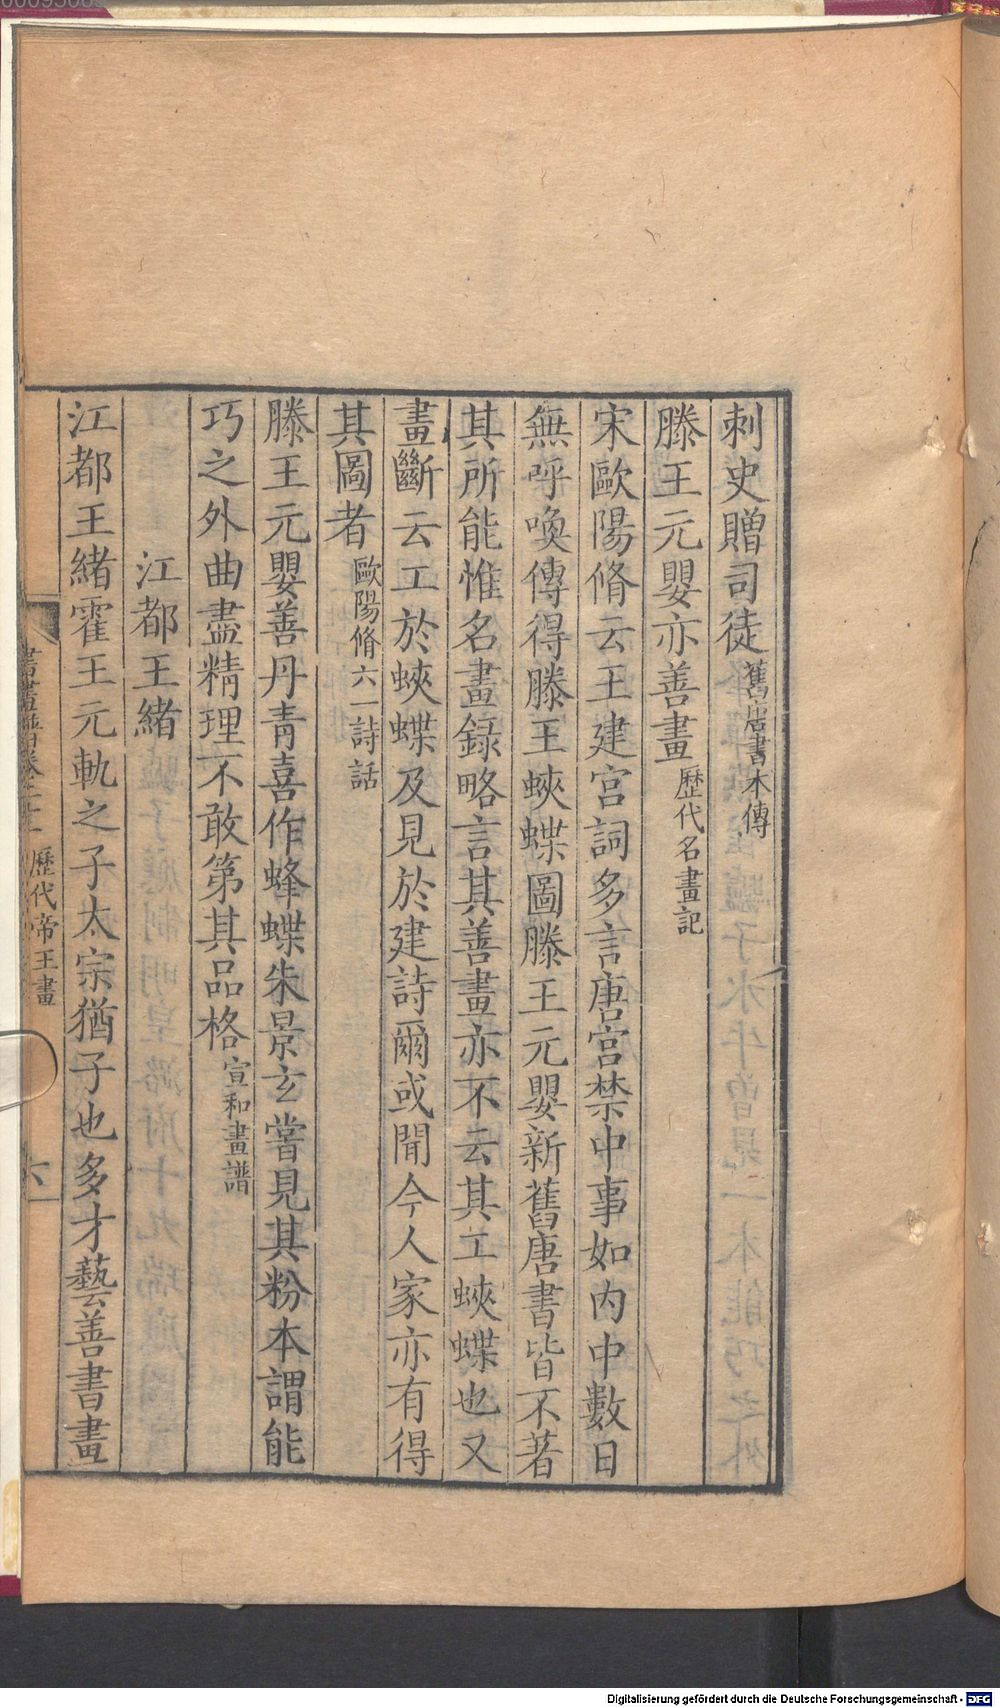 刺史贈司徒舊唐書本傳
滕王元嬰亦善畫歷代名畫記
宋歐陽脩云王建宮詞多言唐宮禁中事如內中數日
無呼喚傳得滕王蛺蝶圖滕王元嬰新舊唐書皆不著
其所能惟名畫錄略言其善畫亦不云其工蛺蝶也又
畫斷云工於蛺蝶及見於建詩爾或聞今人家亦有得
其圖者歐陽脩六一詩話
滕王元嬰善丹青喜作蜂蝶朱景玄嘗見其粉本謂能
巧之外曲盡精理不敢第其品格宣和畫譜
江都王緒
江都王緒霍王元軌之子太宗猶子也多才藝善書畫
歷代帝王畫
六
Digitalisierung gefördert durch die Deutsche Forschungsgemeinschaft - DFG